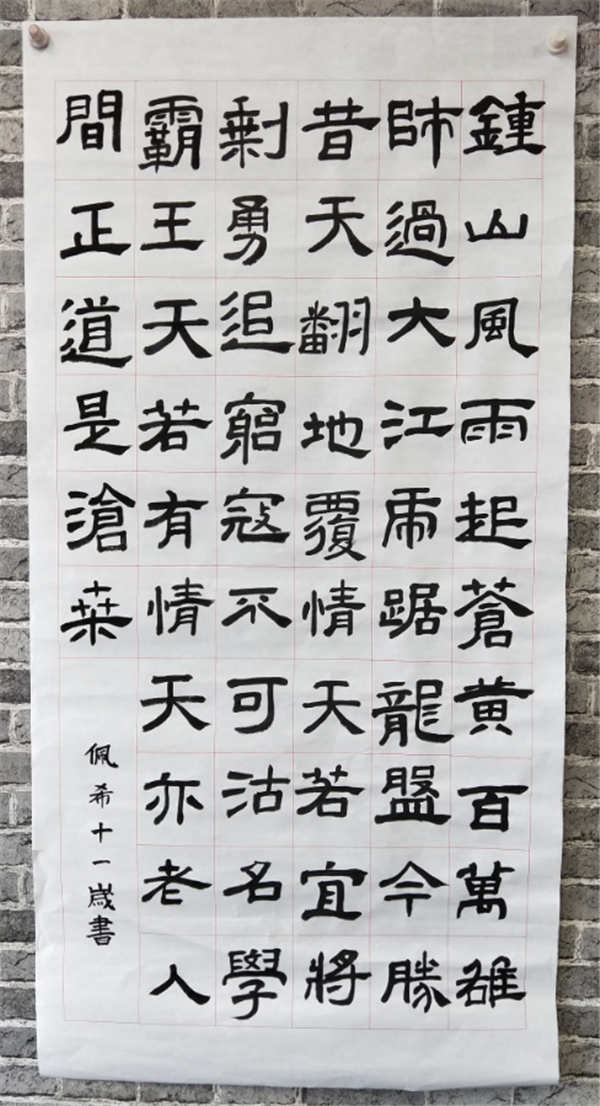 鍾山風雨起蒼黃百萬雄
師過大江虎踞龍盤今勝
昔天翻地覆情天若宜將
剩勇追窮寇不可沽名學
霸王天若有情天亦老人
間正道是滄桒
佩希十一歲書